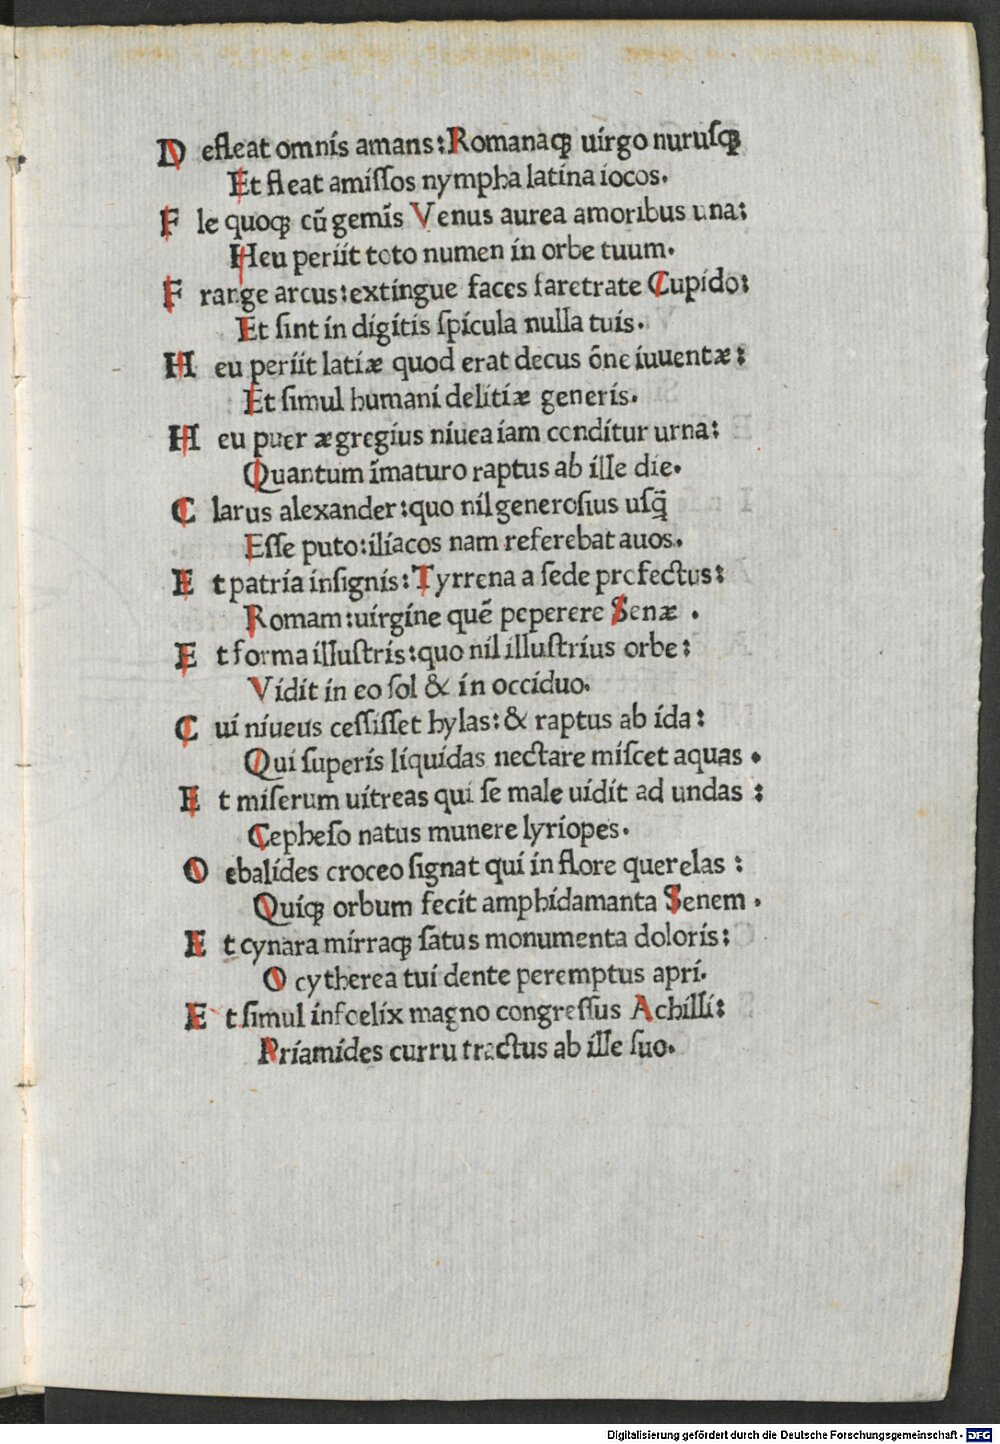 D efleat omnis amans: Romanaqꝫ uirgo nuruſqꝫ
Et fleat amiſſos nympha latina iocos.
F le quoqꝫ cū gemis Venus aurea amoribus una:
Heu periit toto numen in orbe tuum.
F range arcus: extingue faces faretrate Cupido:
Et ſint in digitis ſpicula nulla tuis.
H eu periit latiæ quod erat decus ōne iuuentæ:
Et ſimul humani delitiæ generis.
H eu puer ægregius niuea iam conditur urna:
Quantum īmaturo raptus ab ille die.
C larus alexander: quo nil generoſius uſq̄
Eſſe puto: iliacos nam referebat auos.
E t patria inſignis: Tyrrena a ſede profectus:
Romam: uirgine quē peperere Senæ .
E t forma illuſtris: quo nil illuſtrius orbe:
Vidit in eo ſol & in occiduo.
C ui niueus ceſſiſſet hylas: & raptus ab ida:
Qui ſuperis liquidas nectare miſcet aquas .
E t miſerum uitreas qui ſe male uidit ad undas :
Cepheſo natus munere lyriopes.
O ebalides croceo ſignat qui in flore querelas :
Quiqꝫ orbum fecit amphidamanta Senem .
E t cynara mirraqꝫ ſatus monumenta doloris:
O cytherea tui dente peremptus apri.
E t ſimul infoelix magno congreſſus Achilli:
Priamides curru tractus ab ille ſuo.
Digitalisierung gefördert durch die Deutsche Forschungsgemeinschaft - DFG